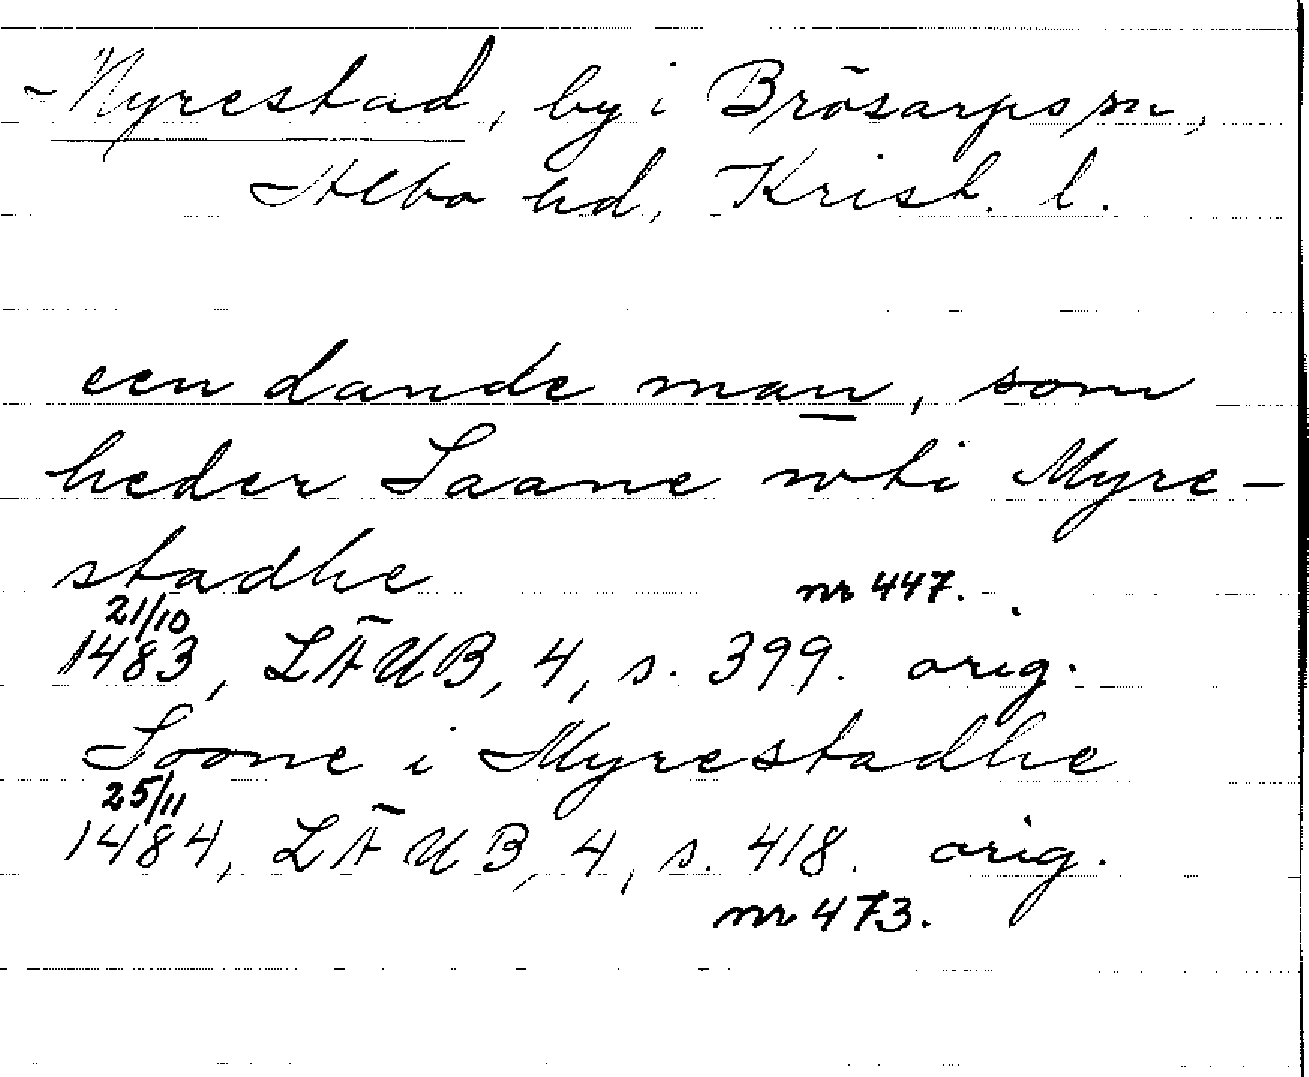 Myrestad, by i Brösarps sn,
Albo hd, Krist. l.
een dande man, som
heder Saane wti Myre-
stadhe
nr 447.
21/10
1483, LÄUB, 4, s. 399. orig.
Soone i Myrestadhe
25/11
1484, LÄUB, 4, s. 418. orig.
nr 473.